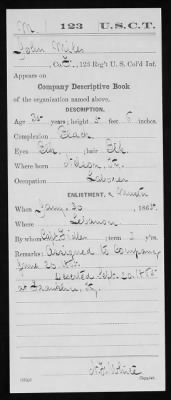 M. 123 U.S.C.T.
John Miles
Co. , 123 Reg't U. S. Col'd Inf.
Appears on
Company Descriptive Book
of the organization named above.
DESCRIPTION.
Age years; height 5 feet 8 inches.
Complexion Black
Eyes Blk, hair Blk.
Where born Nelson Ky.
Occupation Laborer
ENLISTMENT.
When Jany. 20, 1865.
Where Lebanon
By whom Capt. Fidler term 3 y'rs.
Remarks: Assigned to Company
June 20.
Deserted Sept. 20/1865
at Franklin, Ky.
White
Copyist.